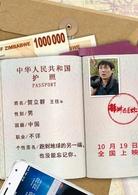 ZIMBABWE
1000000
中华人民共和国
护 照
PASSPORT
姓名：贺立群
性别：男
国籍：中国
职业：不详
个性签名：跑到地球的另一端，
也没能忘记你。
10月19日
全国上映